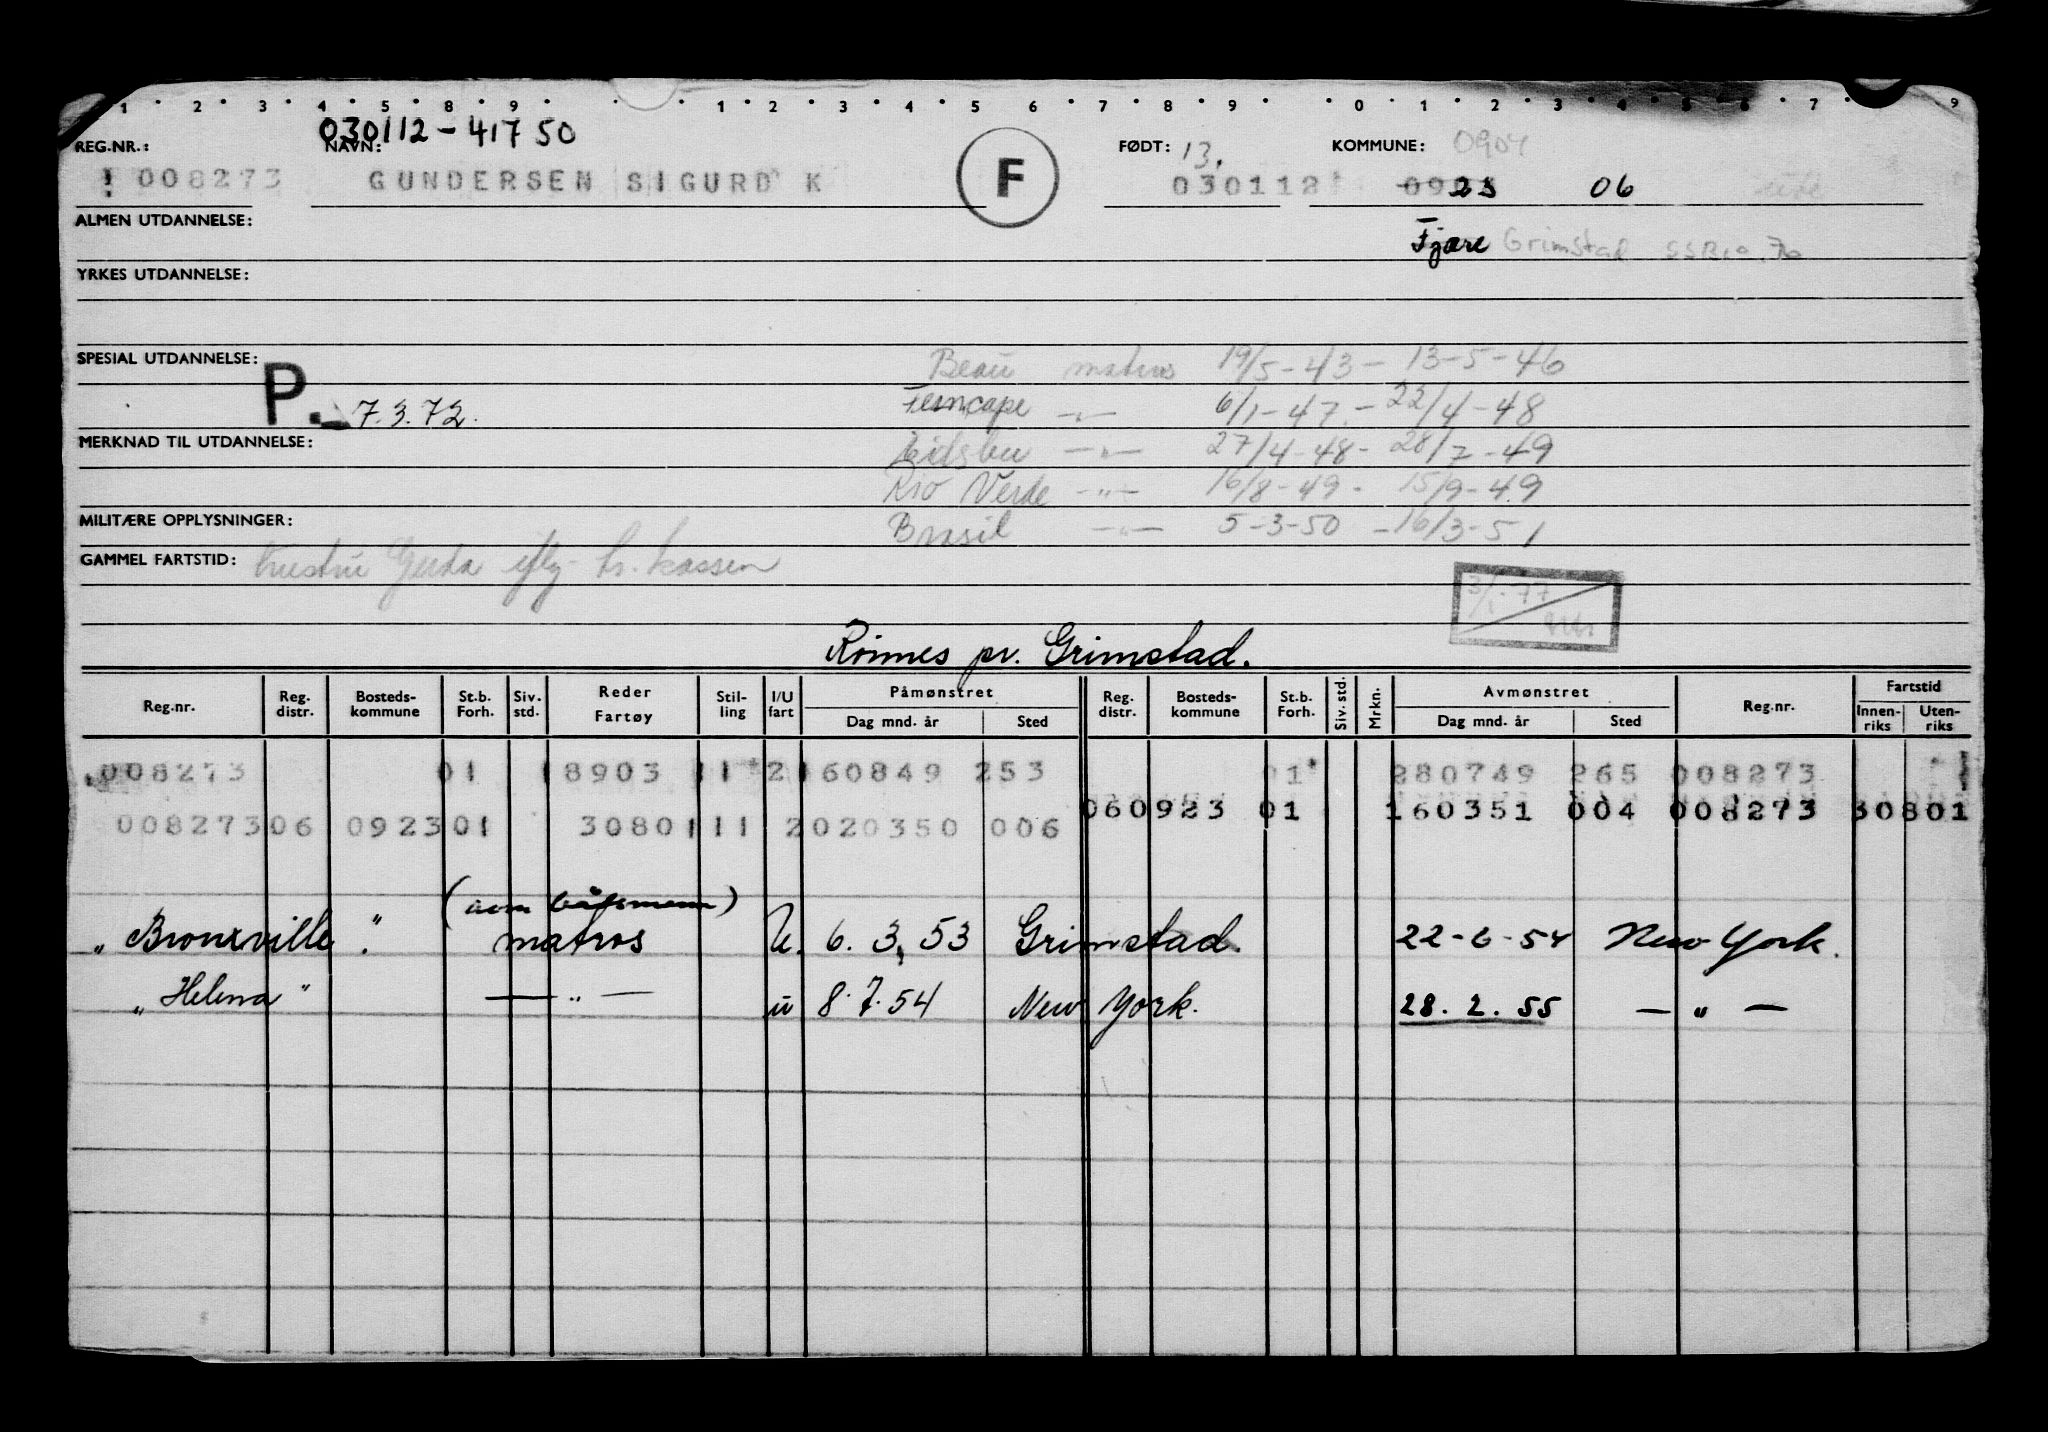 1 2 3 4 5 8 9 1 2 3 4 5 6 7 8 9 0 1 2 3 4 5 6 7 9
030112-41750
REG.NR.: NAVN: FØDT: 13. KOMMUNE: 0904
008273 GUNDERSEN SIGURD K F 030112 23 06
ALMEN UTDANNELSE:
Fjære Grimstad
YRKES UTDANNELSE:
SPESIAL UTDANNELSE:
Beau matros 19/5-43 - 13-5-46
P. 7.3.72.
Ferncape -"- 6/1-47. - 22/4-48
MERKNAD TIL UTDANNELSE:
Eidsbu -"- 27/4-48 - 28/7-49
Rio Verde -"- 16/8-49 - 15/9-49
MILITÆRE OPPLYSNINGER:
Brasil -"- 5-3-50 - 16/3-51
GAMMEL FARTSTID:
3/1-77
Rønnes pr. Grimstad.
Reg.nr. Reg. distr. Bosteds- kommune St.b. Forh. Siv. std. Reder Fartøy Stil- ling I/U fart Påmønstret Dag mnd. år Sted Reg. distr. Bosteds- kommune St.b. Forh. Siv. std. Mrkn. Avmønstret Dag mnd. år Sted Reg.nr. Fartstid Innen- riks Uten- riks
008273 01 18903 11 2 160849 253 01 280749 265 008273
060923 01 160351 004 008273 30801
00827306 092301 30801 11 2020350 006
(avm båtsmann)
"Bronxville". matros U. 6. 3. 53 Grimstad. 22-6-54 New York.
"Helena" — " — u 8.7.54 New York. 28.2.55 — " —